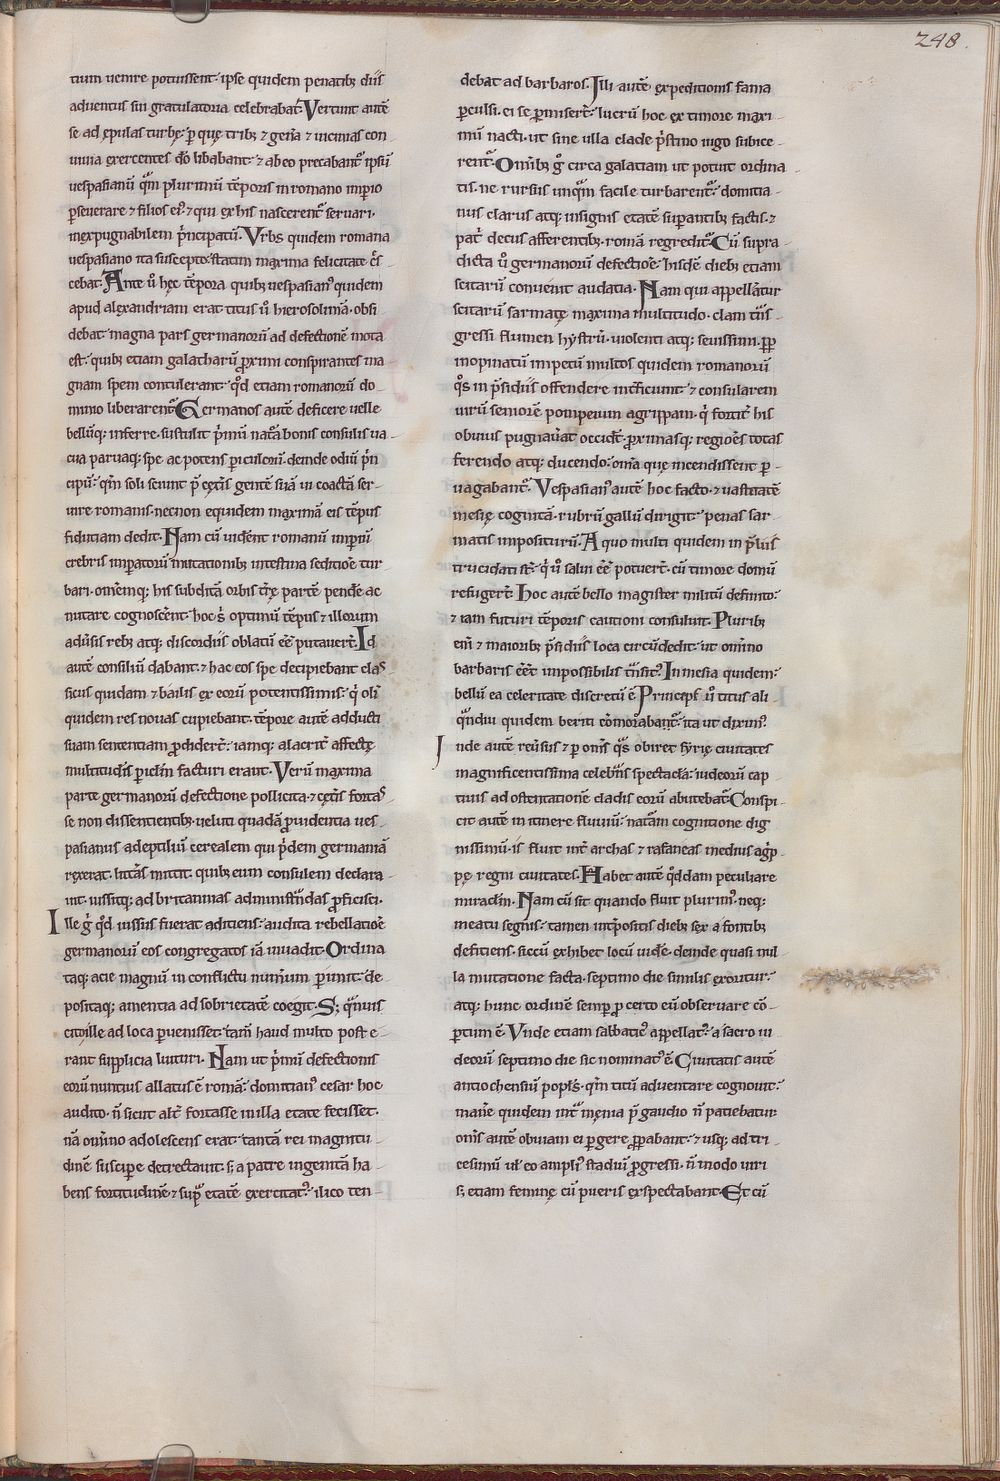 248.
tium venire potuissent· ipse quidem penatibꝫ diis
adventus sui gratulatoria celebrabat· Vertunt autē
se ad epulas turbę· ꝑ quę tribꝫ ⁊ gen̄a ⁊ vicinias con
vivia exercentes dō libabant· ⁊ ab eo precabant᷑ ipsū
vespasianū qm̄ plurimū tēporis in romano imꝑio
ꝑseverare ⁊ filios eiꝰ· ⁊ qui ex his nascerent᷑ servari·
inexpugnabilem p̄ncipatū· Vrbs quidem romana
vespasiano ita suscepto· statim maxima felicitate c̄s
cebat· Ante ū hęc tēpora quibꝫ vespasianꝰ quidem
apud alexandriam erat· titus ū hierosolimā obsi
debat· magna pars germanorū ad defectionē mota
est· quibꝫ etiam galatharū ꝓximi conspirantes ma
gnam spem contulerant· qd̄ etiam romanorū do
minio liberarent᷑· Germanos autē deficere velle
bellūq; inferre· sustulit p̄mū nat̄a bonis consiliis va
cua parvaq; spe ac potens ꝑiculorū· deinde odiū p̄n
cipū· qm̄ soli sciunt p̄ cęt̄is gentē suā vi coactā ser
vire romanis· necnon equidem maximā eis tēpus
fiduciam dedit· Nam cū vidēnt romanū imꝑiū
crebris imꝑatorū mutationibꝫ intestina seditiōe tur
bari· omēmq; his subditā orbis t̄rę partē pendē ac
nutare cognoscēnt· hoc s̄ optimū tēpus ⁊ illorum
advsis rebꝫ atq; discordiis oblatū eē̄ putaver̄t· Id
autē consiliū dabant· ⁊ hac eos spe decipiebant clas
sicus quidam ⁊ bailis ex eorū potentissimis· q̄ oli
quidem res novas cupiebant· tēpore autē adducti
suam sententiam ꝓdider̄t· iamq; alacrit̄ affectę
multitudīs ꝑiclm̄ facturi erant· Verū maxima
parte germanorū defectione pollicita· ⁊ cęt̄is fortas
se non dissentientibꝫ· veluti quadā ꝓvidentia ves
pasianus ad eptiliū cerealem qui p̄dem germaniā
rexerat· litt̄as mittit· quibꝫ eum consulem declara
vit· iussitq; ad britannias administr̄ndas ꝓficisci·
Ille g̊ qd̄ iussus fuerat adiciens· audita rebellatiōe
germanorū eos congregatos iā invadit· Ordina
taq; acie magnū in conflictu numerum ꝑimit· de
positaq; amentia ad sobrietatē coegit· S; q̄mvis
citi᷑ ille ad loca ꝑvenisset· tam̄ haud multo post e
rant supplicia luituri· Nam ut p̄mū defectionis
eorū nuntius allatus ē romā· domitianꝰ cesar hoc
audito· n̄ sicut alt̄ fortasse in illa etate fecisset·
nā om̄ino adolescens erat· tantā rei magnitu
dinē suscipe detrectavit· s; a patre ingenitā ha
bens fortitudinē ⁊ sup̄ etatē exercitatꝰ· ilico ten
debat ad barbaros· Illi autē expeditionis fama
ꝑculsi· ei se ꝑmiser̄t· lucrū hoc ex timore maxi
mū nacti· ut sine ulla clade p̄stino iugo subice
rent᷑· Om̄ibꝫ g̊ circa galatiam ut potuit ordina
tis· ne rursus unqm̄ facile turbarent᷑· domitia
nus clarus atq; insignis etatē supantibꝫ factis· ⁊
pat̄ decus afferentibꝫ· romā regredit᷑· Cū supra
dicta ū germanorū defectiōe· hisdē diebꝫ etiam
scitarū convenit audatia· Nam qui appellant᷑
scitarū sarmatę maxima multitudo· clam tr̄s
gressi flumen hystrū· violenti atq; sevissimi· ꝓp
inopinatū impetū multos quidem romanorū
qs̄ in p̄sidiis offendere int̄ficiunt· ⁊ consularem
virū seniorē pompeium agrippam· q̄ fortit̄ his
obvius pugnav̄at occidt̄· ꝓximasq; regiōes totas
ferendo atq; ducendo· om̄ia quę incendissent ꝑ
vagabant᷑· Vespasianꝰ autē hoc facto· ⁊ vastitatē
mesię cognitā· rubrū gallū dirigit· penas sar
matis impositurū· A quo multi quidem in p̄liis
trucidati st̄· q̄ ū salvi eē̄ potuer̄t· cū timore domū
refuger̄t· Hoc autē bello magister militū definito·
⁊ iam futuri tēporis cautioni consuluit· Pluribꝫ
em̄ ⁊ maioribꝫ p̄sidiis loca circūdedit· ut om̄ino
barbaris eēt̄ impossibilis tr̄nsitꝰ· In mesia quidem·
bellū ea celeritate discretū ē· Princeps ū titus ali
qn̄diu quidem beriti cōmorabant᷑· ita ut diximꝰ·
Inde autē reūsus ⁊ ꝑ om̄is qs̄ obiret syrię civitates
magnificentissima celebn̄s spectacla· iudeorū cap
tivis ad ostentationē cladis eorū abutebat᷑· Conspi
cit autē in itinere fluviū· nat̄am cognitione dig
nissimū· is fluit int̄ archas ⁊ rafaneas medius agp̄
pę regni civitates· Habet autē qd̄dam peculiare
miraclm̄· Nam cū sit quando fluit plurimꝰ· neq;
meatu segnis· tamen int̄positis diebꝫ sex a fontibꝫ
deficiens· siccū exhibet locū vidē· deinde quasi nul
la mutatione facta· septimo die similis exoritur·
atq; hunc ordinē semꝑ ꝓ certo eū observare cō
ꝑtum ē· Vnde etiam sabbaticꝰ appellat᷑· a sacro iu
deorū septimo die sic nominatꝰ ē· Civitatis autē
antiochensiū popls̄· qm̄ titū adventare cognovit·
man̄e quidem int̄ męnia p̄ gaudio n̄ patiebatur
om̄s autē obviam ei ꝑgere ꝓꝑabant· ⁊ usq; ad tri
cesimū ul̄ eo ampliꝰ stadiū ꝓgressi· n̄ modo viri
s; etiam feminę cū pueris exspectabant· Et cū